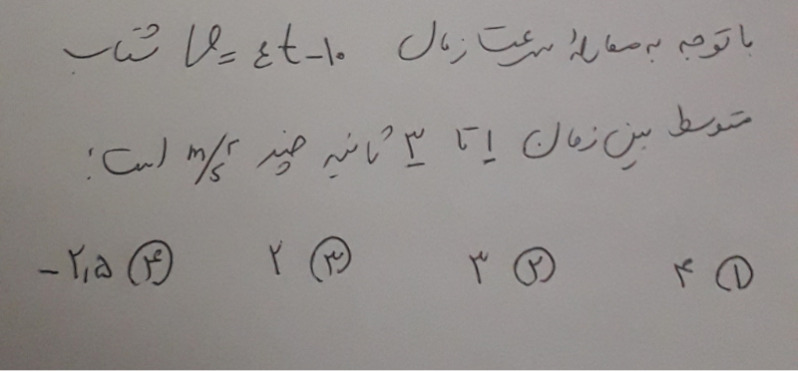 با توجه به معادلهٔ سرعت زمان V = ٤t - ۱۰ شتاب
متوسط بین زمان ۱ تا ۳ ثانیه چند m/s۲ است:
۱) ۴ ۲) ۳ ۳) ۲ ۴) -۲,۵